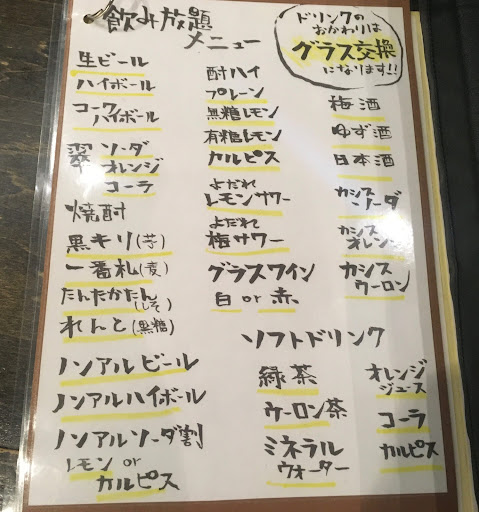 飲み放題
メニュー
ドリンクの
おかわりは
グラス交換
になります!!
生ビール
ハイボール
コーク
ハイボール
翠 ソーダ
オレンジ
コーラ
焼酎
黒キリ(芋)
一番札(麦)
たんたかたん
(しそ)
れんと(黒糖)
ノンアルビール
ノンアルハイボール
ノンアルソーダ割
レモン or
カルピス
酎ハイ
プレーン
無糖レモン
有糖レモン
カルピス
よだれ
レモンサワー
よだれ
梅サワー
グラスワイン
白 or 赤
梅酒
ゆず酒
日本酒
カシス
ソーダ
カシス
オレンジ
カシス
ウーロン
ソフトドリンク
緑茶
ウーロン茶
ミネラル
ウォーター
オレンジ
ジュース
コーラ
カルピス